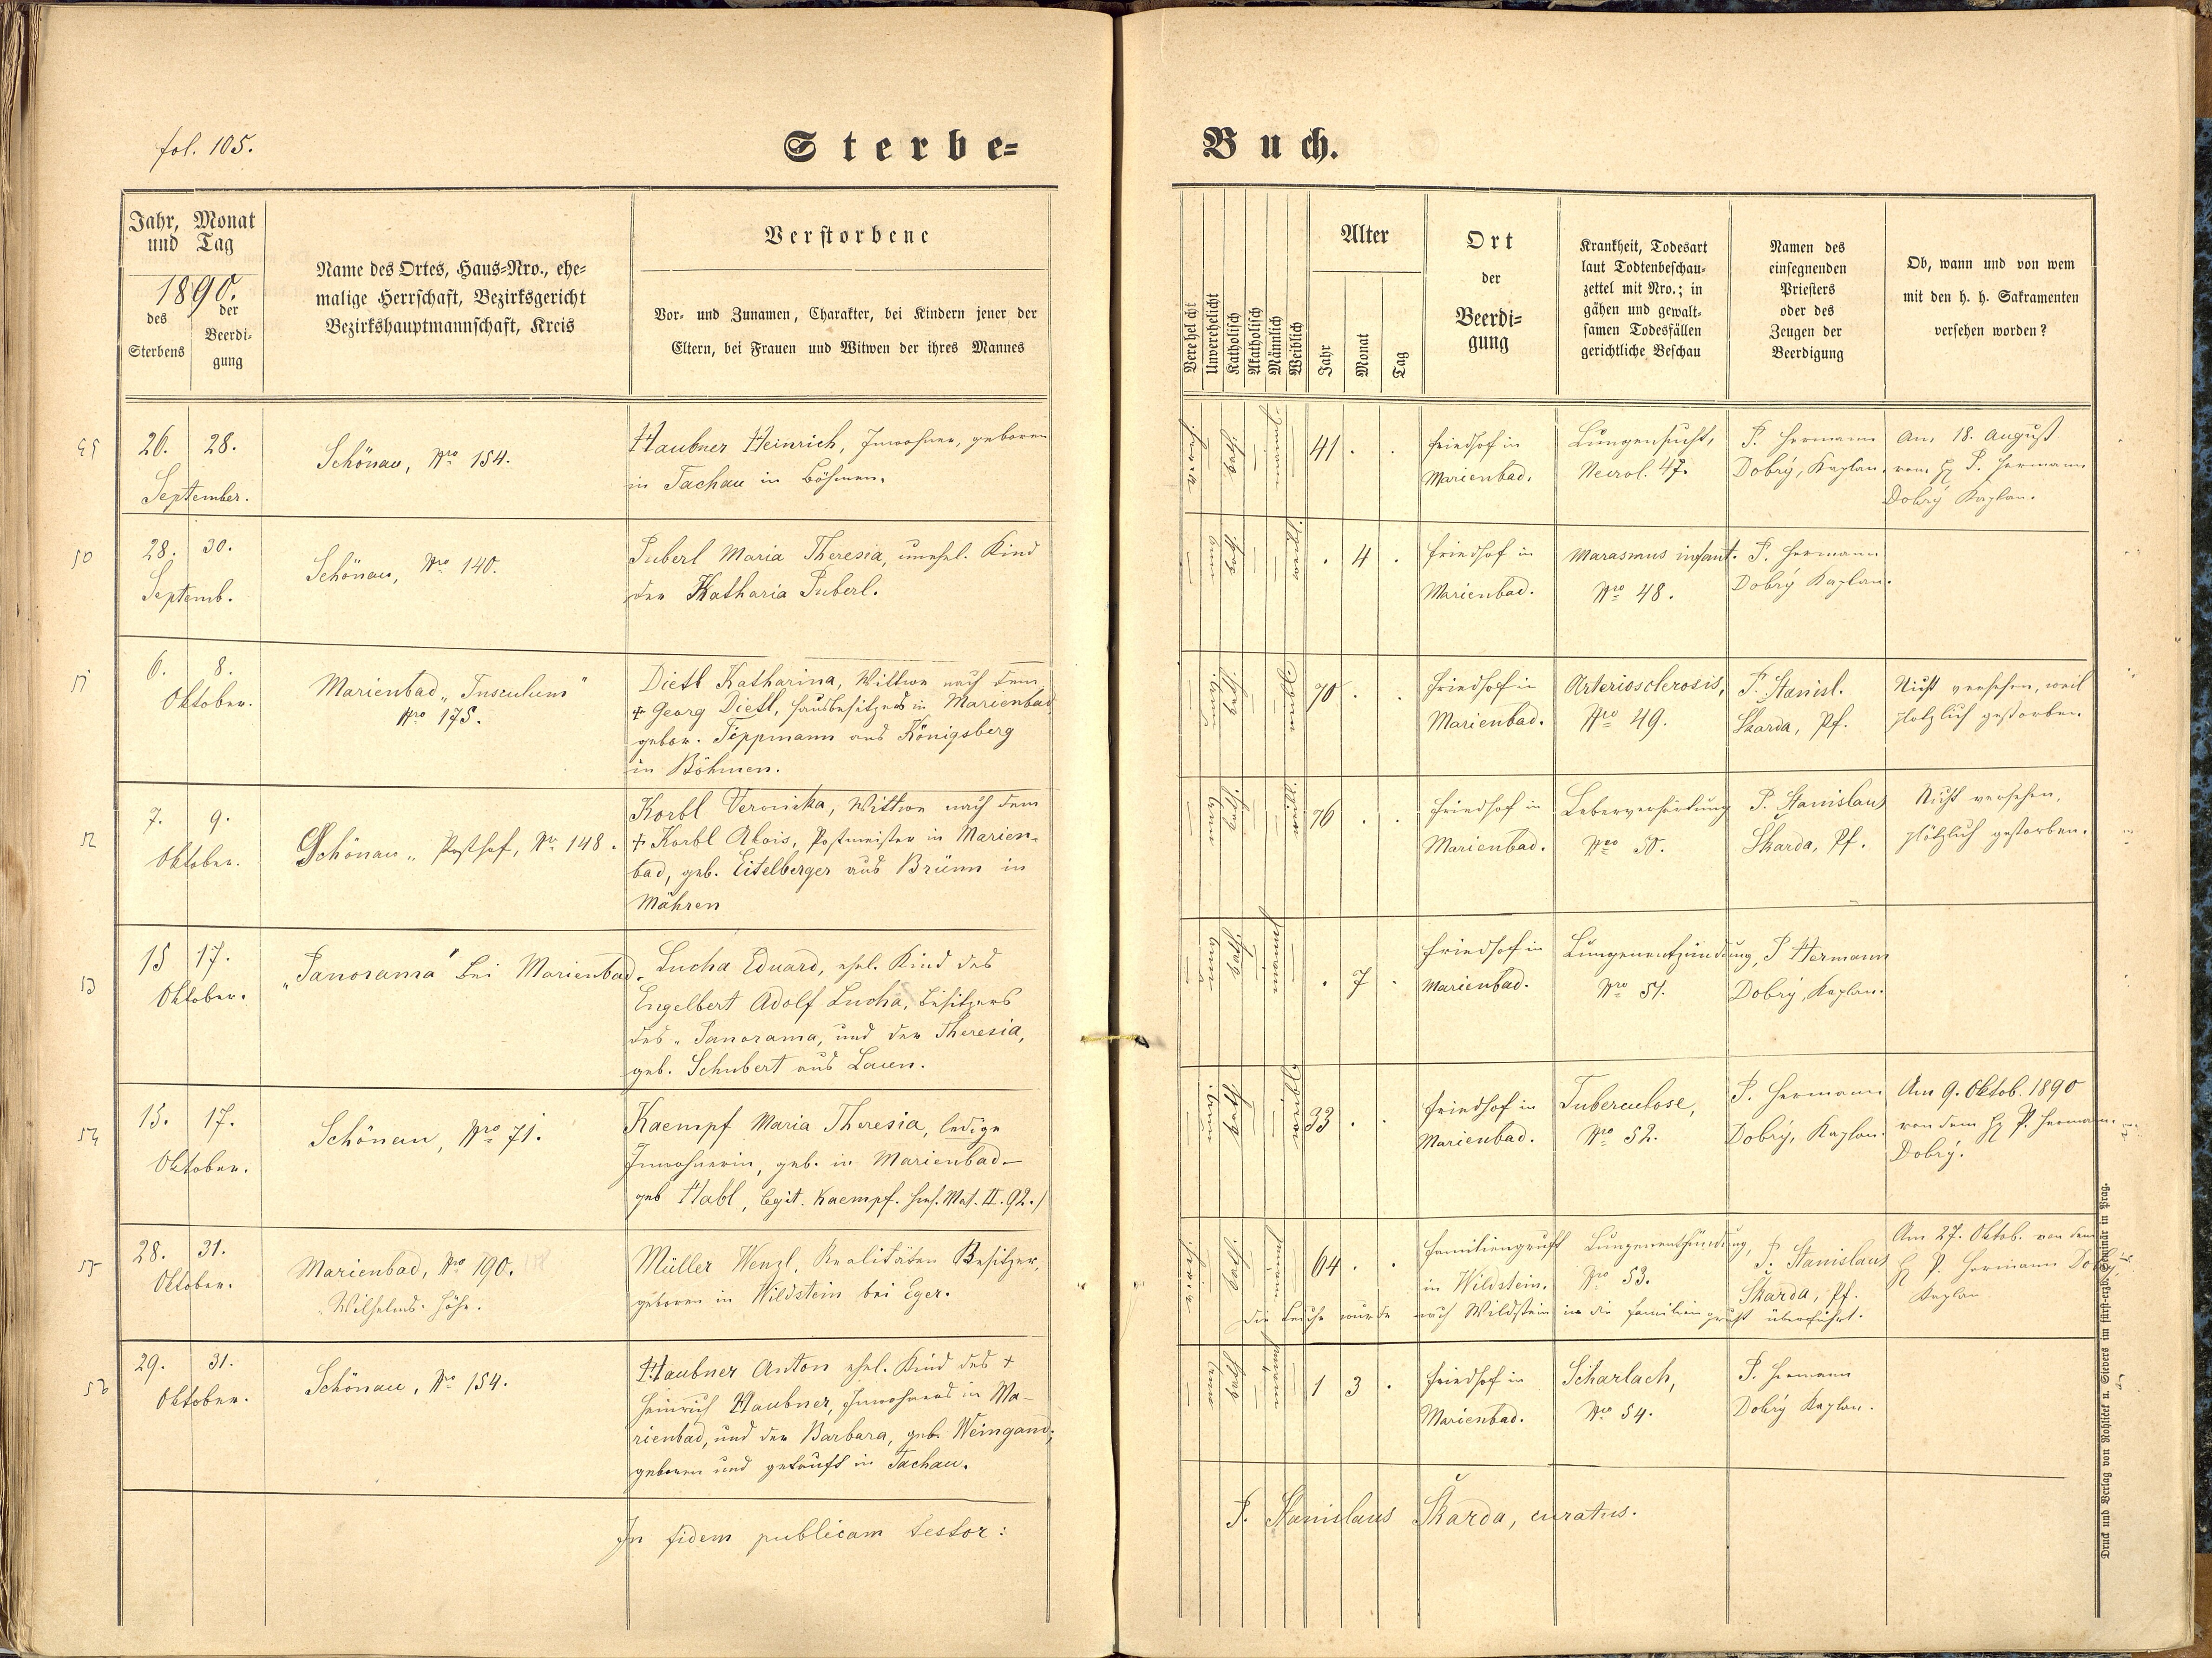 fol. 105.
Sterbe=
Buch.
Jahr, Monat
und Tag
1890.
des
Sterbens
der
Beerdi-
gung
Name des Ortes, Haus=Nro., ehe=
malige Herrschaft, Bezirksgericht
Bezirkshauptmannschaft, Kreis
Verstorbene
Vor- und Zunamen, Charakter, bei Kindern jener der
Eltern, bei Frauen und Witwen der ihres Mannes
Verehelicht
Unverehelicht
Katholisch
Akatholisch
Männlich
Weiblich
Alter
Jahr
Monat
Tag
Ort
der
Beerdi=
gung
Krankheit, Todesart
laut Todtenbeschau=
zettel mit Nro.; in
gähen und gewalt=
samen Todesfällen
gerichtliche Beschau
Namen des
einsegnenden
Priesters
oder des
Zeugen der
Beerdigung
Ob, wann und von wem
mit den h. h. Sakramenten
versehen worden?
26. 28.
September.
Schönau, Nro 154.
Haubner Heinrich, Inwohner, geboren
in Tachau in Böhmen.
41 . .
Friedhof in
Marienbad.
Lungensucht,
Necrol. 47.
P. Hermann
Dobrý, Kaplan.
Am 18. August
vom H P. Hermann
Dobrý Kaplan.
50
28. 30.
Septemb.
Schönau, Nro 140.
Puberl Maria Theresia, unehel. Kind
der Katharia Puberl.
. 4 .
Friedhof in
Marienbad.
Marasmus infant.
Nro 48.
P. Hermann
Dobrý Kaplan.
51
6. 8.
Oktober.
Marienbad "Tusculum"
Nro 175.
Dietl Katharina, Wittwe nach dem
+ Georg Dietl, Hausbesitzers in Marienbad
gebor. Teppmann aus Königsberg
in Böhmen.
70 . .
Friedhof in
Marienbad.
Arteriosclerosis,
Nro 49.
P. Stanisl.
Skarda, Pf.
Nicht versehen, weil
plötzlich gestorben.
52
7. 9.
Oktober.
Schönau, Posthof, Nr. 148.
Korbl Veronika, Wittwe nach dem
+ Korbl Alois, Postmeister in Marien-
bad, geb. Eitelberger aus Brünn in
Mähren
76 . .
Friedhof in
Marienbad.
Leberverhärtung
Nro 50.
P. Stanislaus
Skarda, Pf.
Nicht versehen,
plötzlich gestorben.
53
15 17.
Oktober.
"Panorama" bei Marienbad.
Lucha Eduard, ehel. Kind des
Engelbert Adolf Lucha, Besitzers
des "Panorama, und der Theresia,
geb. Schubert aus Laun.
. 7 .
Friedhof in
Marienbad.
Lungenentzündung,
Nro 51.
P Hermann
Dobrý, Kaplan.
54
15. 17.
Oktober.
Schönau, Nro 71.
Kaempf Maria Theresia, ledige
Inwohnerin, geb. in Marienbad-
geb Habl, legit. Kaempf. Mat. II. 92.
33 . .
Friedhof in
Marienbad.
Tuberculose,
Nro 52.
P. Hermann
Dobrý, Kaplan.
Am 9. Oktob. 1890
von dem H P. Hermann.
Dobrý.
55
28. 31.
Oktober.
Marienbad, Nro 190.
"Wilhelms-Höhe.
Müller Wenzl, Realitäten Besitzer,
geboren in Wildstein bei Eger.
64 . .
Familiengruft
in Wildstein.
Lungenentzündung,
Nro 53.
P. Stanislaus
Skarda, Pf.
Am 27. Oktob. von dem
H P. Hermann Dobrý
Kaplan
Die Leiche wurde nach Wildstein in die Familiengruft überführt.
56
29. 31.
Oktober.
Schönau, Nro 154.
Haubner Anton ehel. Kind des +
Heinrich Haubner, Inwohners in Ma-
rienbad, und der Barbara, geb. Weingand;
geboren und getauft in Tachau.
1 3 .
Friedhof in
Marienbad.
Scharlach,
Nro 54.
P. Hermann
Dobrý Kaplan.
In fidem publicam testor:
P. Stanislaus Škarda, curatus.
Druck und Verlag von Rohlíček u. Sievers im fürst-erzb. Seminär in Prag.